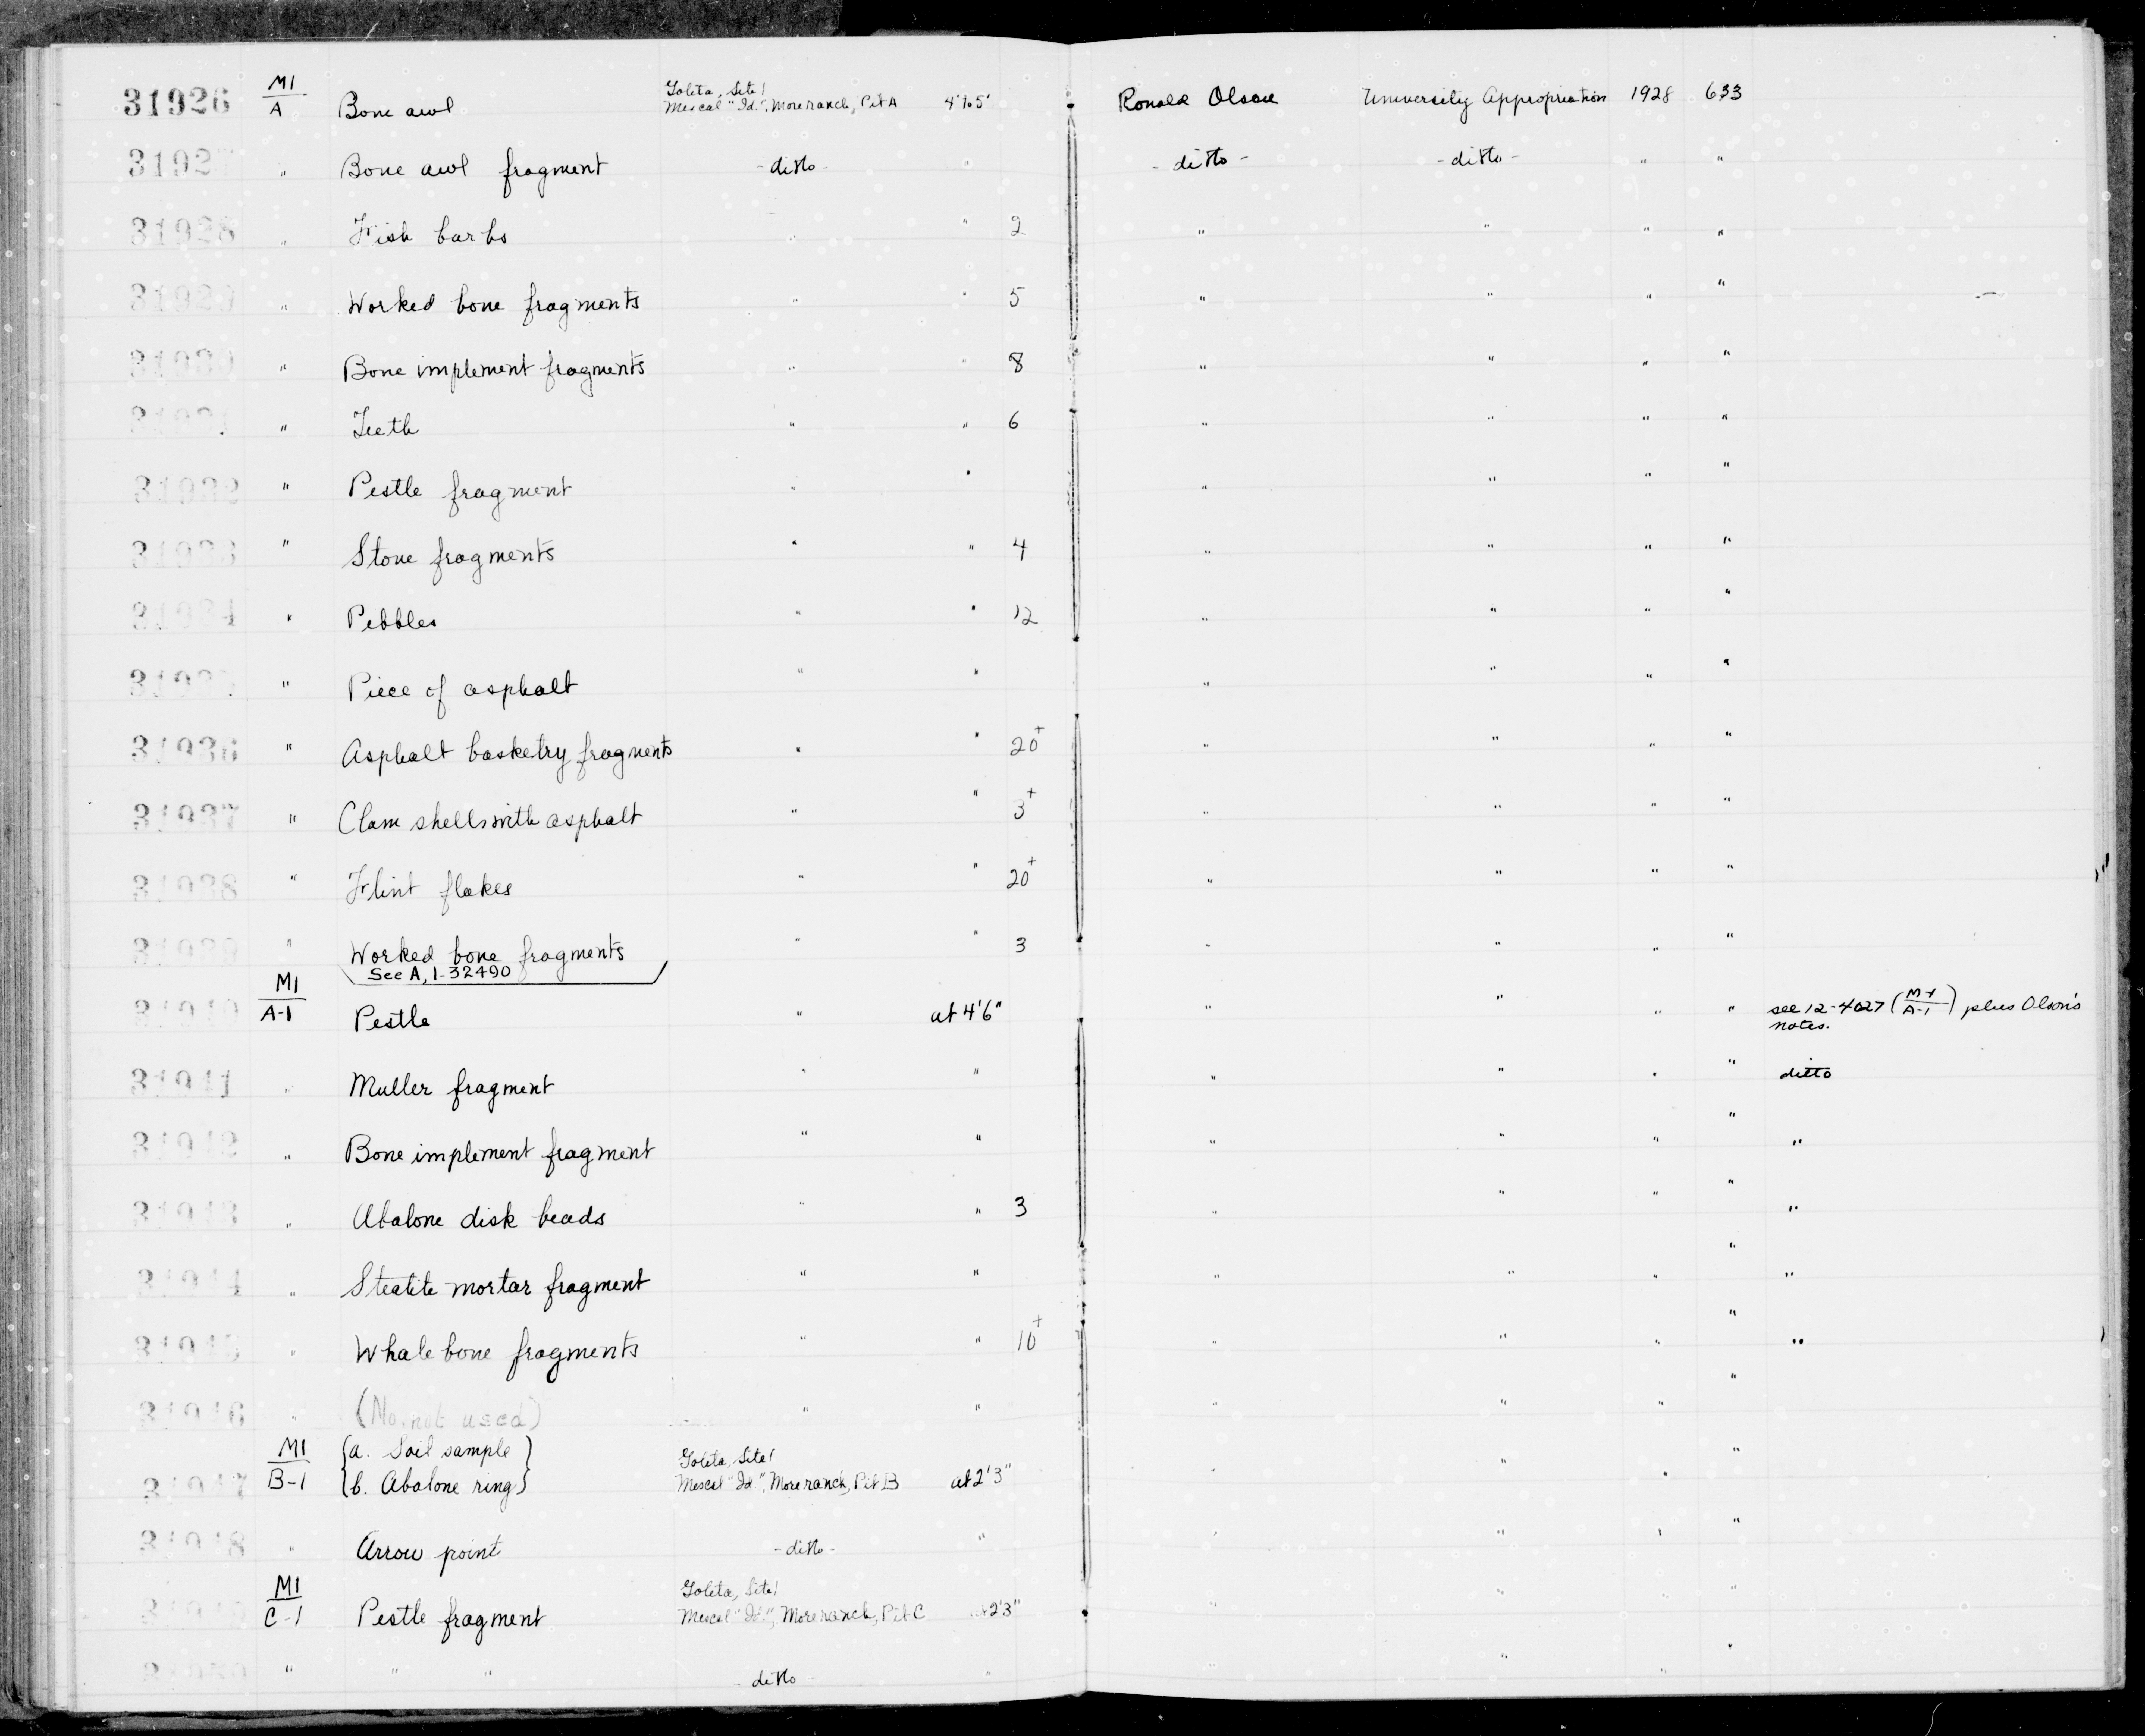 31926 M1/A Bone awl Goleta, Site 1 Mescal "Id.", More ranch, Pit A 4' to 5' Ronald Olson University Appropriation 1928 633
31927 " Bone awl fragment - ditto - " - ditto - - ditto - " "
31928 " Fish barbs " " 2 " " " "
31929 " Worked bone fragments " " 5 " " " "
31930 " Bone implement fragments " " 8 " " " "
31931 " Teeth " " 6 " " " "
31932 " Pestle fragment " " " " " "
31933 " Stone fragments " " 4 " " " "
31934 " Pebbles " " 12 " " " "
31935 " Piece of asphalt " " " " " "
31936 " Asphalt basketry fragments " " 20+ " " " "
31937 " Clam shells with asphalt " " 3+ " " " "
31938 " Flint flakes " " 20+ " " " "
31939 " Worked bone fragments " " 3 " " " "
See A, 1-32490
31940 M1/A-1 Pestle " at 4'6" " " " " see 12-4027 (M-1/A-1) plus Olson's notes.
31941 " Muller fragment " " " " " " ditto
31942 " Bone implement fragment " " " " " " "
31943 " Abalone disk beads " " 3 " " " " "
31944 " Steatite mortar fragment " " " " " " "
31945 " Whale bone fragments " " 10+ " " " " "
31946 " (No. not used) " " " " " "
31947 M1/B-1 {a. Soil sample} {b. Abalone ring} Goleta, Site 1 Mescal "Id.", More ranch, Pit B at 2'3" " " " "
31948 " Arrow point - ditto - " " " " "
31949 M1/C-1 Pestle fragment Goleta, Site 1 Mescal "Id.", More ranch, Pit C at 2'3" " " " "
31950 " " " - ditto - " " " " "